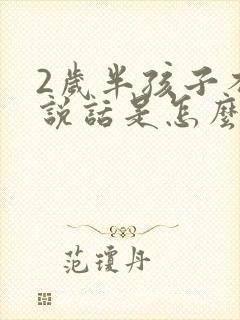 2歲半孩子不
說話是怎麼
范瓊丹